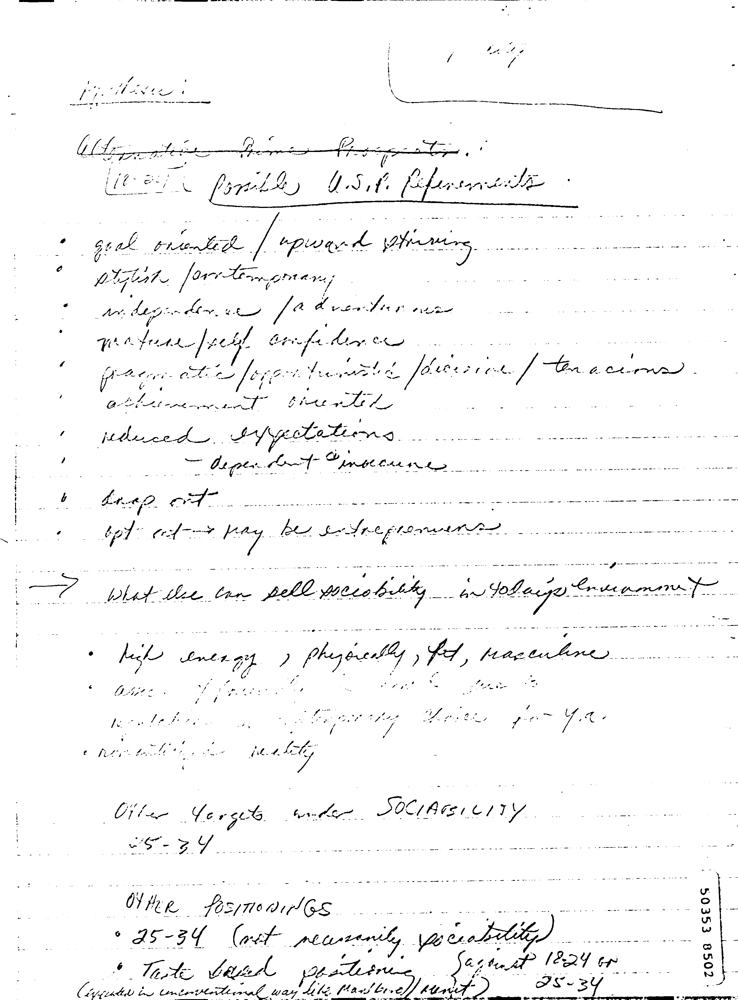 Alternative Prime Prospects :
18-24 Possible U.S.P. Refinements
• goal oriented / upward striving
• stylish / contemporary
• independence / adventurous
• mature / self confidence
• pragmatic / opportunistic / decisive / tenacious
• achievement oriented
• reduced expectations
• – dependent insecure
• drop out
• opt out → may be entrepreneurs
→ What else can sell sociability in today's Environment
• high energy, physically, fit, masculine
choice for Y.A.
• reality
Other targets under SOCIABILITY
25-34
OTHER POSITIONINGS
• 25-34 (not necessarily sociability)
• Taste based positioning { against 18-24 or
25-34
in unconventional way like Merit )
50353 8502